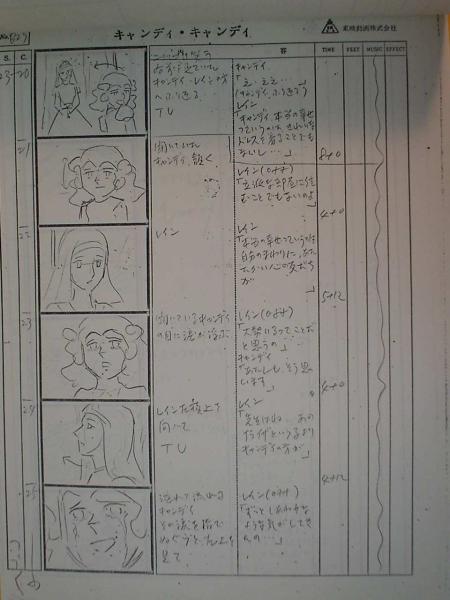 キャンディ・キャンディ
東映動画株式会社
S.
C.
答
TIME
FEET
MUSIC
EFFECT
23-20
キャンディ
「え・ええ…
」
(キャンディ、ふり返る)
キャンディ・レインの方
へふり返る
TU
レイン
「キャンディ、本当の幸せ
っていうのは、きれいな
ドレスを着ることでも
ないし…」
8+0
21
聞いている
キャンディ、驚く
レイン(OFF)
「立派な部屋に住
むことでもないのよ
4+0
22
レイン
レイン
「本当の幸せっていうのは
自分のまわりに、あた
たかい心の友だちが
」
5+12
23
聞いているキャンディ
の目に涙が浮ぶ
レイン(OFF)
「大勢いるってことだ
と思うの」
キャンディ
「あたしも、そう思
います」
4+0
24
レイン左横上を
向いて
TU
レイン
「先生はね、あの
より
キャンディの方が」
4+12
25
流れて流れる
キャンディ
その涙を指で
ぬぐうと、左上を
見て
レイン(OFF)
「ずっとしあわせな
ような気がしてき
たの…」
つづく